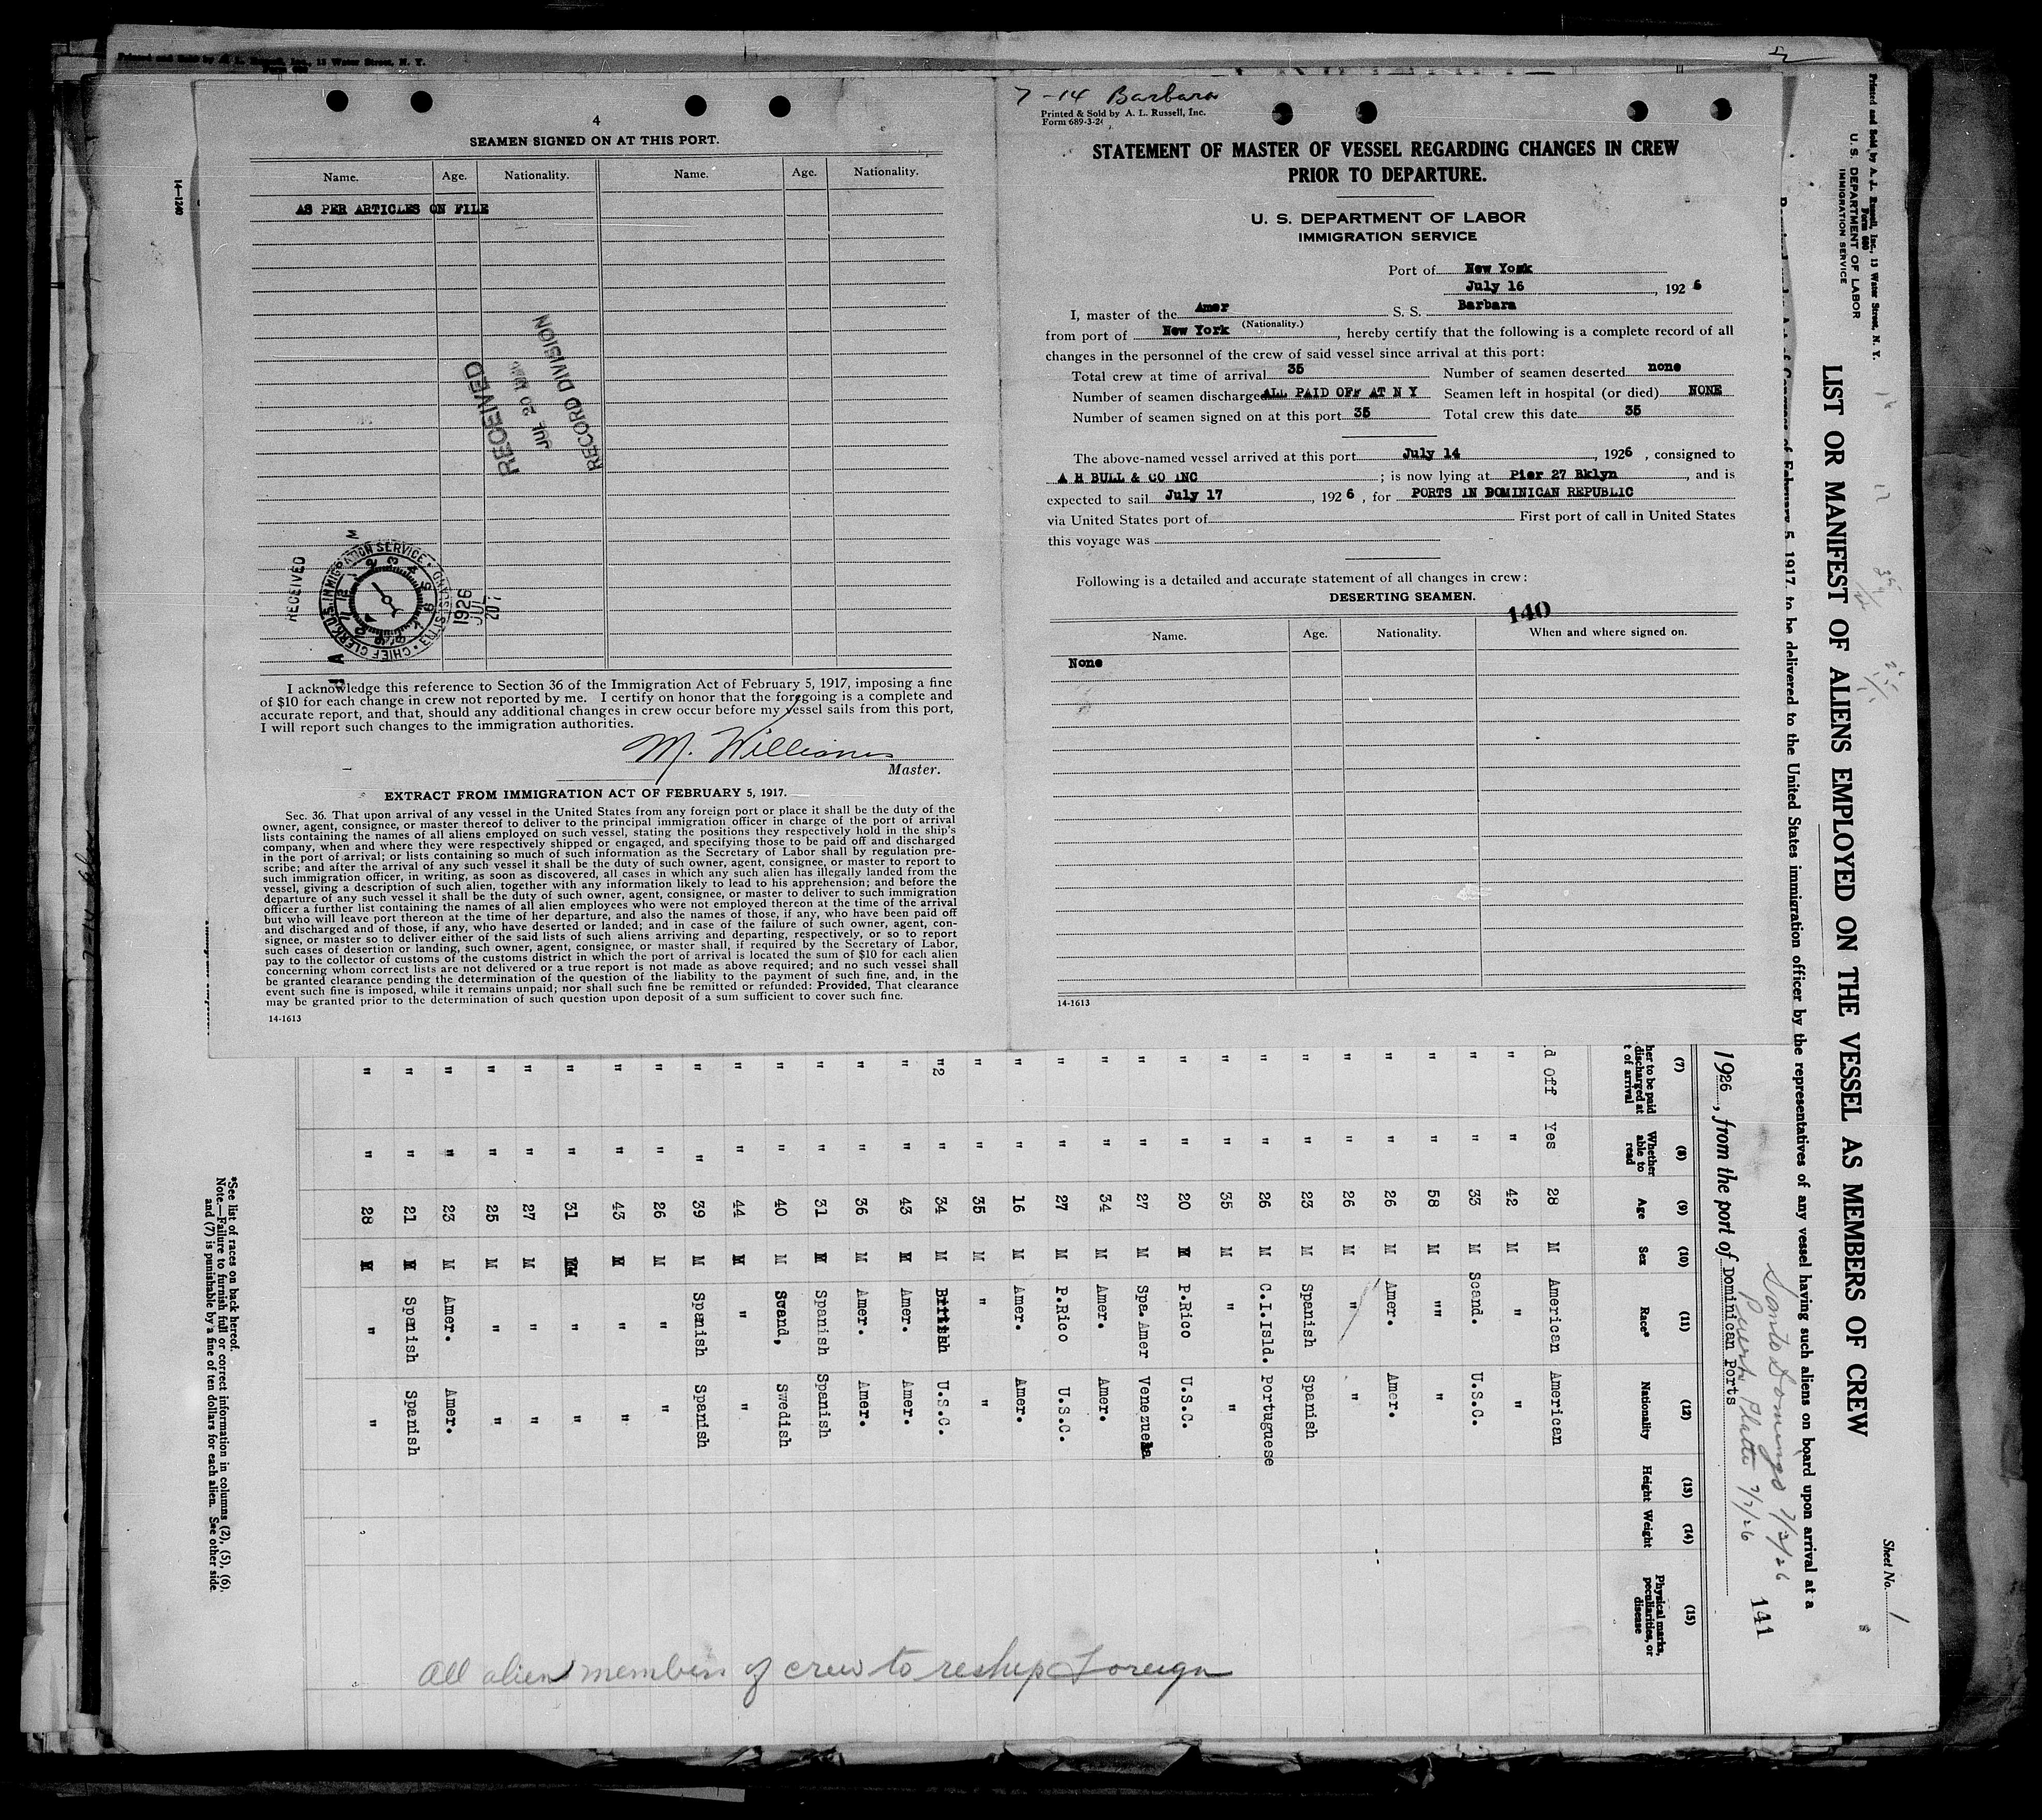 Printed and Sold by A. L. Russell, Inc., 13 Water Street, N. Y.
4
SEAMEN SIGNED ON AT THIS PORT.
Name. Age. Nationality. Name. Age. Nationality.
AS PER ARTICLES ON FILE
RECEIVED
JUL 20
RECORD DIVISION
RECEIVED
CHIEF CLERK U.S. IMMIGRATION SERVICE
1926
JUL
20
I acknowledge this reference to Section 36 of the Immigration Act of February 5, 1917, imposing a fine
of $10 for each change in crew not reported by me. I certify on honor that the foregoing is a complete and
accurate report, and that, should any additional changes in crew occur before my vessel sails from this port,
I will report such changes to the immigration authorities.
M. Williams
Master.
EXTRACT FROM IMMIGRATION ACT OF FEBRUARY 5, 1917.
Sec. 36. That upon arrival of any vessel in the United States from any foreign port or place it shall be the duty of the
owner, agent, consignee, or master thereof to deliver to the principal immigration officer in charge of the port of arrival
lists containing the names of all aliens employed on such vessel, stating the positions they respectively hold in the ship's
company, when and where they were respectively shipped or engaged, and specifying those to be paid off and discharged
in the port of arrival; or lists containing so much of such information as the Secretary of Labor shall by regulation pre-
scribe; and after the arrival of any such vessel it shall be the duty of such owner, agent, consignee, or master to report to
such immigration officer, in writing, as soon as discovered, all cases in which any such alien has illegally landed from the
vessel, giving a description of such alien, together with any information likely to lead to his apprehension; and before the
departure of any such vessel it shall be the duty of such owner, agent, consignee, or master to deliver to such immigration
officer a further list containing the names of all alien employees who were not employed thereon at the time of the arrival
but who will leave port thereon at the time of her departure, and also the names of those, if any, who have been paid off
and discharged and of those, if any, who have deserted or landed; and in case of the failure of such owner, agent, con-
signee, or master so to deliver either of the said lists of such aliens arriving and departing, respectively, or so to report
such cases of desertion or landing, such owner, agent, consignee, or master shall, if required by the Secretary of Labor,
pay to the collector of customs of the customs district in which the port of arrival is located the sum of $10 for each alien
concerning whom correct lists are not delivered or a true report is not made as above required; and no such vessel shall
be granted clearance pending the determination of the question of the liability to the payment of such fine, and, in the
event such fine is imposed, while it remains unpaid; nor shall such fine be remitted or refunded: Provided, That clearance
may be granted prior to the determination of such question upon deposit of a sum sufficient to cover such fine.
14-1613
14-1240
7-14 Barbara
Printed & Sold by A. L. Russell, Inc.
Form 689-3-24
STATEMENT OF MASTER OF VESSEL REGARDING CHANGES IN CREW
PRIOR TO DEPARTURE.
U. S. DEPARTMENT OF LABOR
IMMIGRATION SERVICE
Port of New York
July 16, 1926
I, master of the Amer S. S. Barbara
from port of New York (Nationality.), hereby certify that the following is a complete record of all
changes in the personnel of the crew of said vessel since arrival at this port:
Total crew at time of arrival 35 Number of seamen deserted none
Number of seamen discharge ALL PAID OFF AT N Y Seamen left in hospital (or died) NONE
Number of seamen signed on at this port 35 Total crew this date 35
The above-named vessel arrived at this port July 14, 1926, consigned to
A H BULL & CO INC; is now lying at Pier 27 Bklyn, and is
expected to sail July 17, 1926, for PORTS IN DOMINICAN REPUBLIC
via United States port of First port of call in United States
this voyage was
Following is a detailed and accurate statement of all changes in crew:
DESERTING SEAMEN.
140
Name. Age. Nationality. When and where signed on.
None
14-1613
Printed and Sold by A. L. Russell, Inc., 13 Water Street, N. Y.
Form 680
U. S. DEPARTMENT OF LABOR
IMMIGRATION SERVICE
Sheet No. 1
LIST OR MANIFEST OF ALIENS EMPLOYED ON THE VESSEL AS MEMBERS OF CREW
of February 5, 1917, to be delivered to the United States immigration officer by the representatives of any vessel having such aliens on board upon arrival at a
Santo Domingo 7/3/26
Puerto Platte 7/7/26
141
1926, from the port of Dominican Ports
(7) (8) (9) (10) (11) (12) (13) (14) (15)
her to be paid discharged at t of arrival Whether able to read Age Sex Race* Nationality Height Weight Physical marks, peculiarities, or disease
d Off Yes 28 M American American
" " 42 M " "
" " 33 M Scand. U.S.C.
" " 58 M "" "
" " 26 M Amer. Amer.
" " 26 M " "
" " 23 M Spanish Spanish
" " 26 M C.I.Isld. Portuguese
" " 35 M " "
" " 20 M P.Rico U.S.C.
" " 27 M Spa. Amer Venezuela
" " 34 M Amer. Amer.
" " 27 M P.Rico U.S.C.
" " 16 M Amer. Amer.
" " 35 M " "
"2 " 34 M British U.S.C.
" " 43 M Amer. Amer.
" " 36 M Amer. Amer.
" " 31 M Spanish Spanish
" " 40 M Scand, Swedish
" " 44 M " "
" " 39 M Spanish Spanish
" " 26 M " "
" " 43 M " "
" " 31 M " "
" " 27 M " "
" " 25 M " "
" " 23 M Amer. Amer.
" " 21 M Spanish Spanish
" " 28 M " "
All alien members of crew to reship Foreign
*See list of races on back hereof.
Note.—Failure to furnish full or correct information in columns (2), (5), (6),
and (7) is punishable by a fine of ten dollars for each alien. See other side.